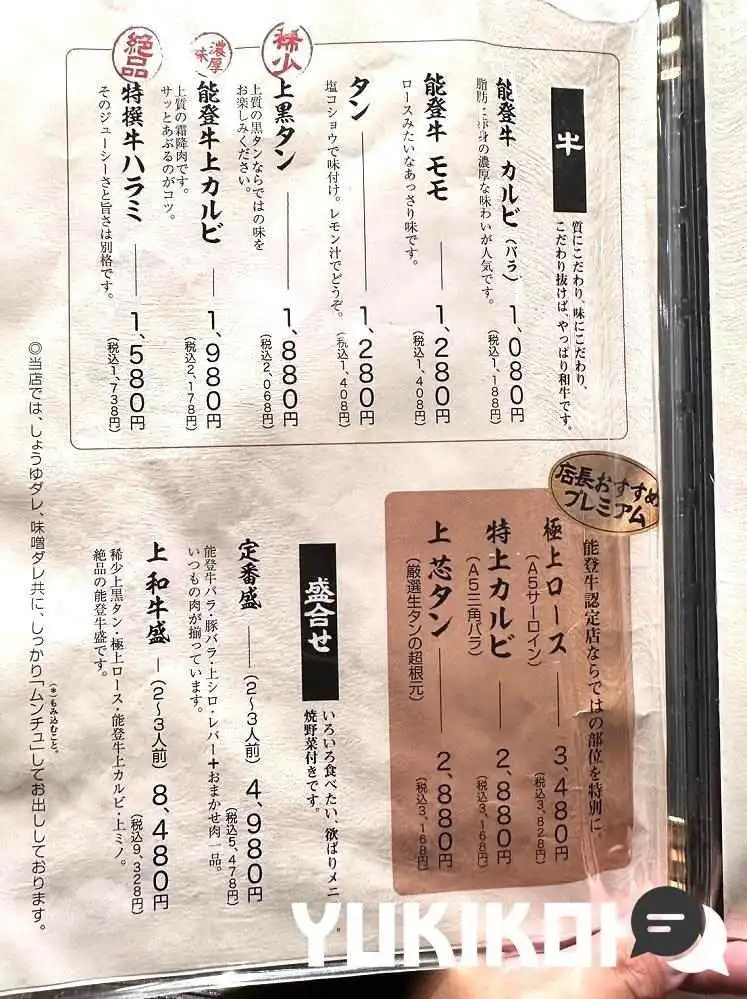 牛
質にこだわり、味にこだわり、
こだわり抜けば、やっぱり和牛です。
能登牛 カルビ(バラ)
1,080円
(税込1,188円)
脂肪と赤身の濃厚な味わいが人気です。
能登牛 モモ
1,280円
(税込1,408円)
ロースみたいなあっさり味です。
タン
1,280円
(税込1,408円)
塩コショウで味付け。レモン汁でどうぞ。
稀少
上黒タン
1,880円
(税込2,068円)
上質の黒タンならではの味を
お楽しみください。
濃厚味
能登牛上カルビ
1,980円
(税込2,178円)
上質の霜降肉です。
サッとあぶるのがコツ。
絶品
特撰牛ハラミ
1,580円
(税込1,738円)
そのジューシーさと旨さは別格です。
店長おすすめ
プレミアム
能登牛認定店ならではの部位を特別に。
極上ロース
3,480円
(税込3,828円)
(A5サーロイン)
特上カルビ
2,880円
(税込3,168円)
(A5三角バラ)
上芯タン
2,880円
(税込3,168円)
(厳選生タンの超根元)
盛合せ
いろいろ食べたい、欲ばりメニ
焼野菜付きです。
定番盛
(2〜3人前)
4,980円
(税込5,478円)
能登牛バラ・豚バラ・上シロ・レバー+おまかせ肉一品。
いつもの肉が揃っています。
上 和牛盛
(2〜3人前)
8,480円
(税込9,328円)
稀少上黒タン・極上ロース・能登牛上カルビ・上ミノ。
絶品の能登牛盛です。
◎当店では、しょうゆダレ、味噌ダレ共に、しっかり「ムンチュ」してお出ししております。
(※)もみ込むこと。
YUKIKOI